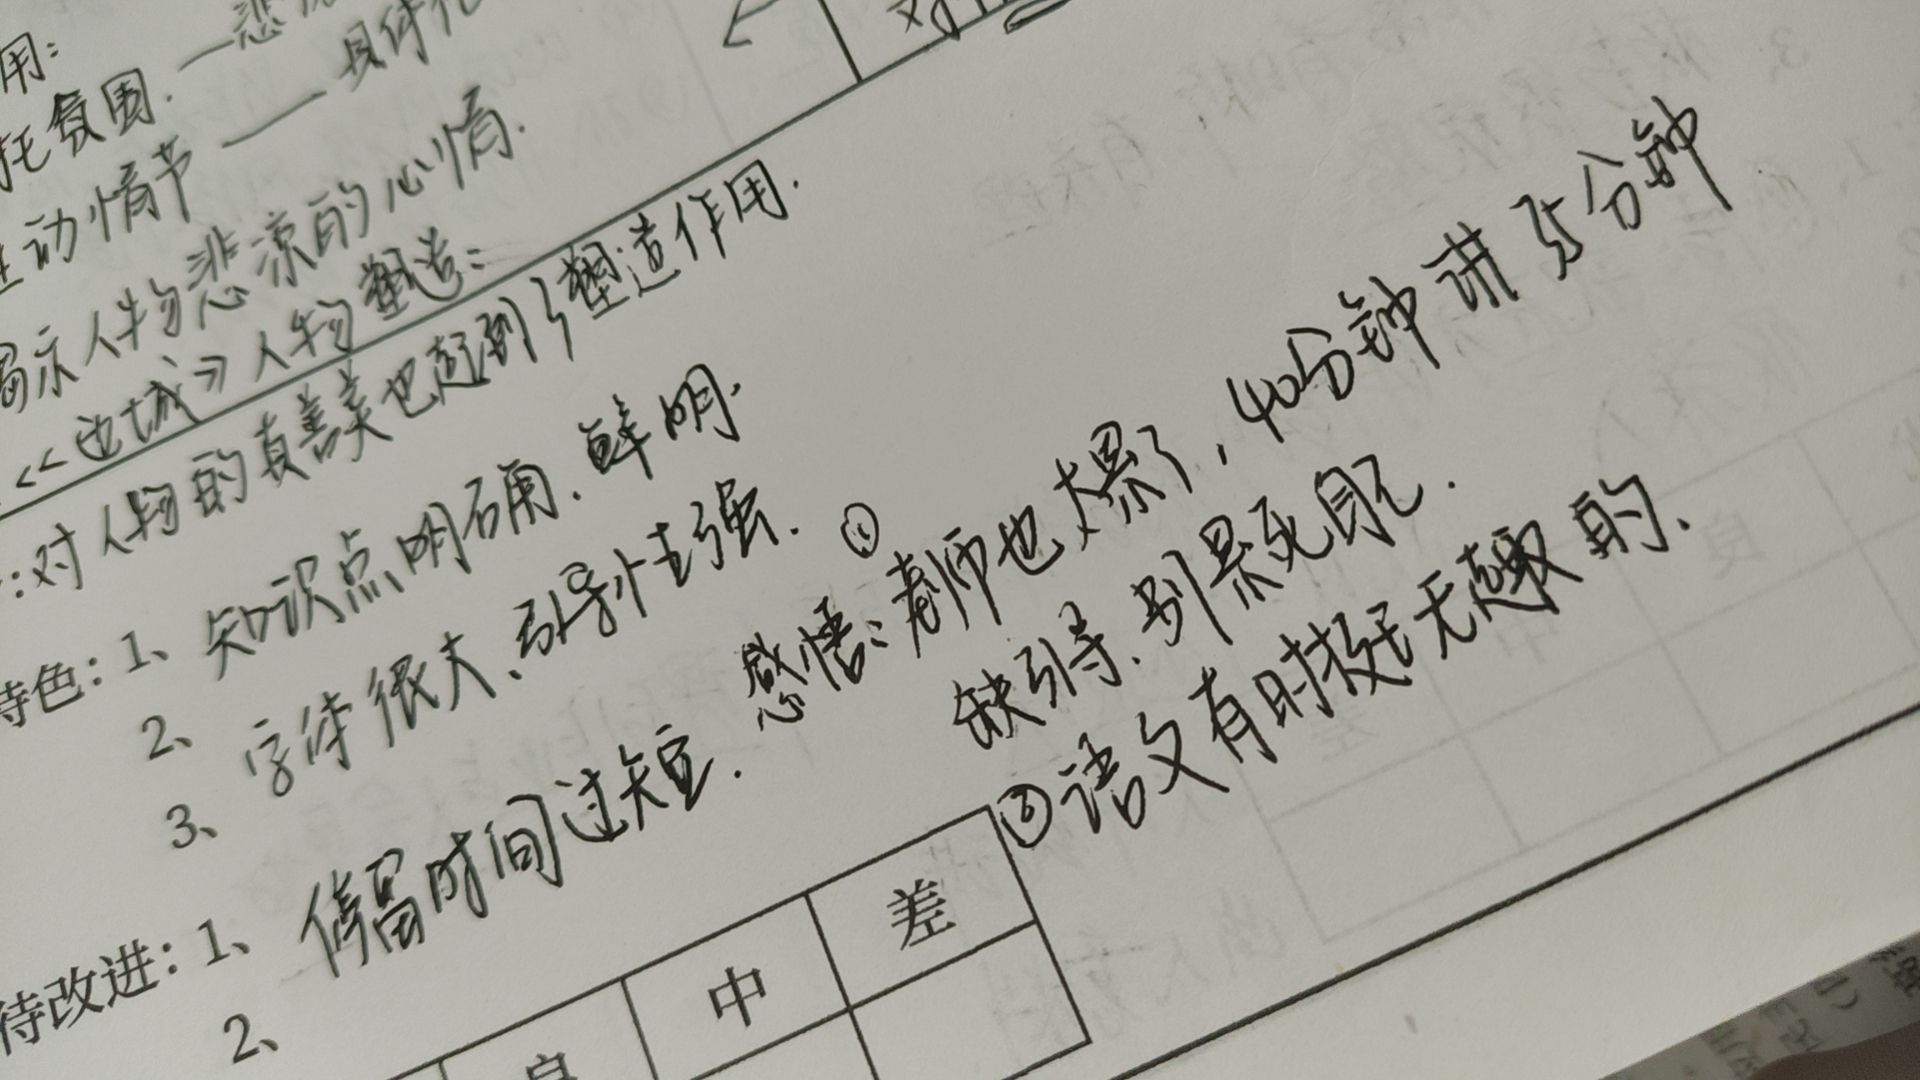 用:
托氛围.——悲
动情节——具体化
揭示人物悲凉的心情.
<<边城>>人物塑造:
:对人物的真善美也起到了塑造作用.
特色:1、知识点明确、鲜明.
2、字体很大、引导性强.
3、
待改进:1、停留时间过短.
2、
感悟:①老师也太累了,40分钟讲35分钟
缺引导、别累死自己.
②语文有时挺无趣的.
良 中 差